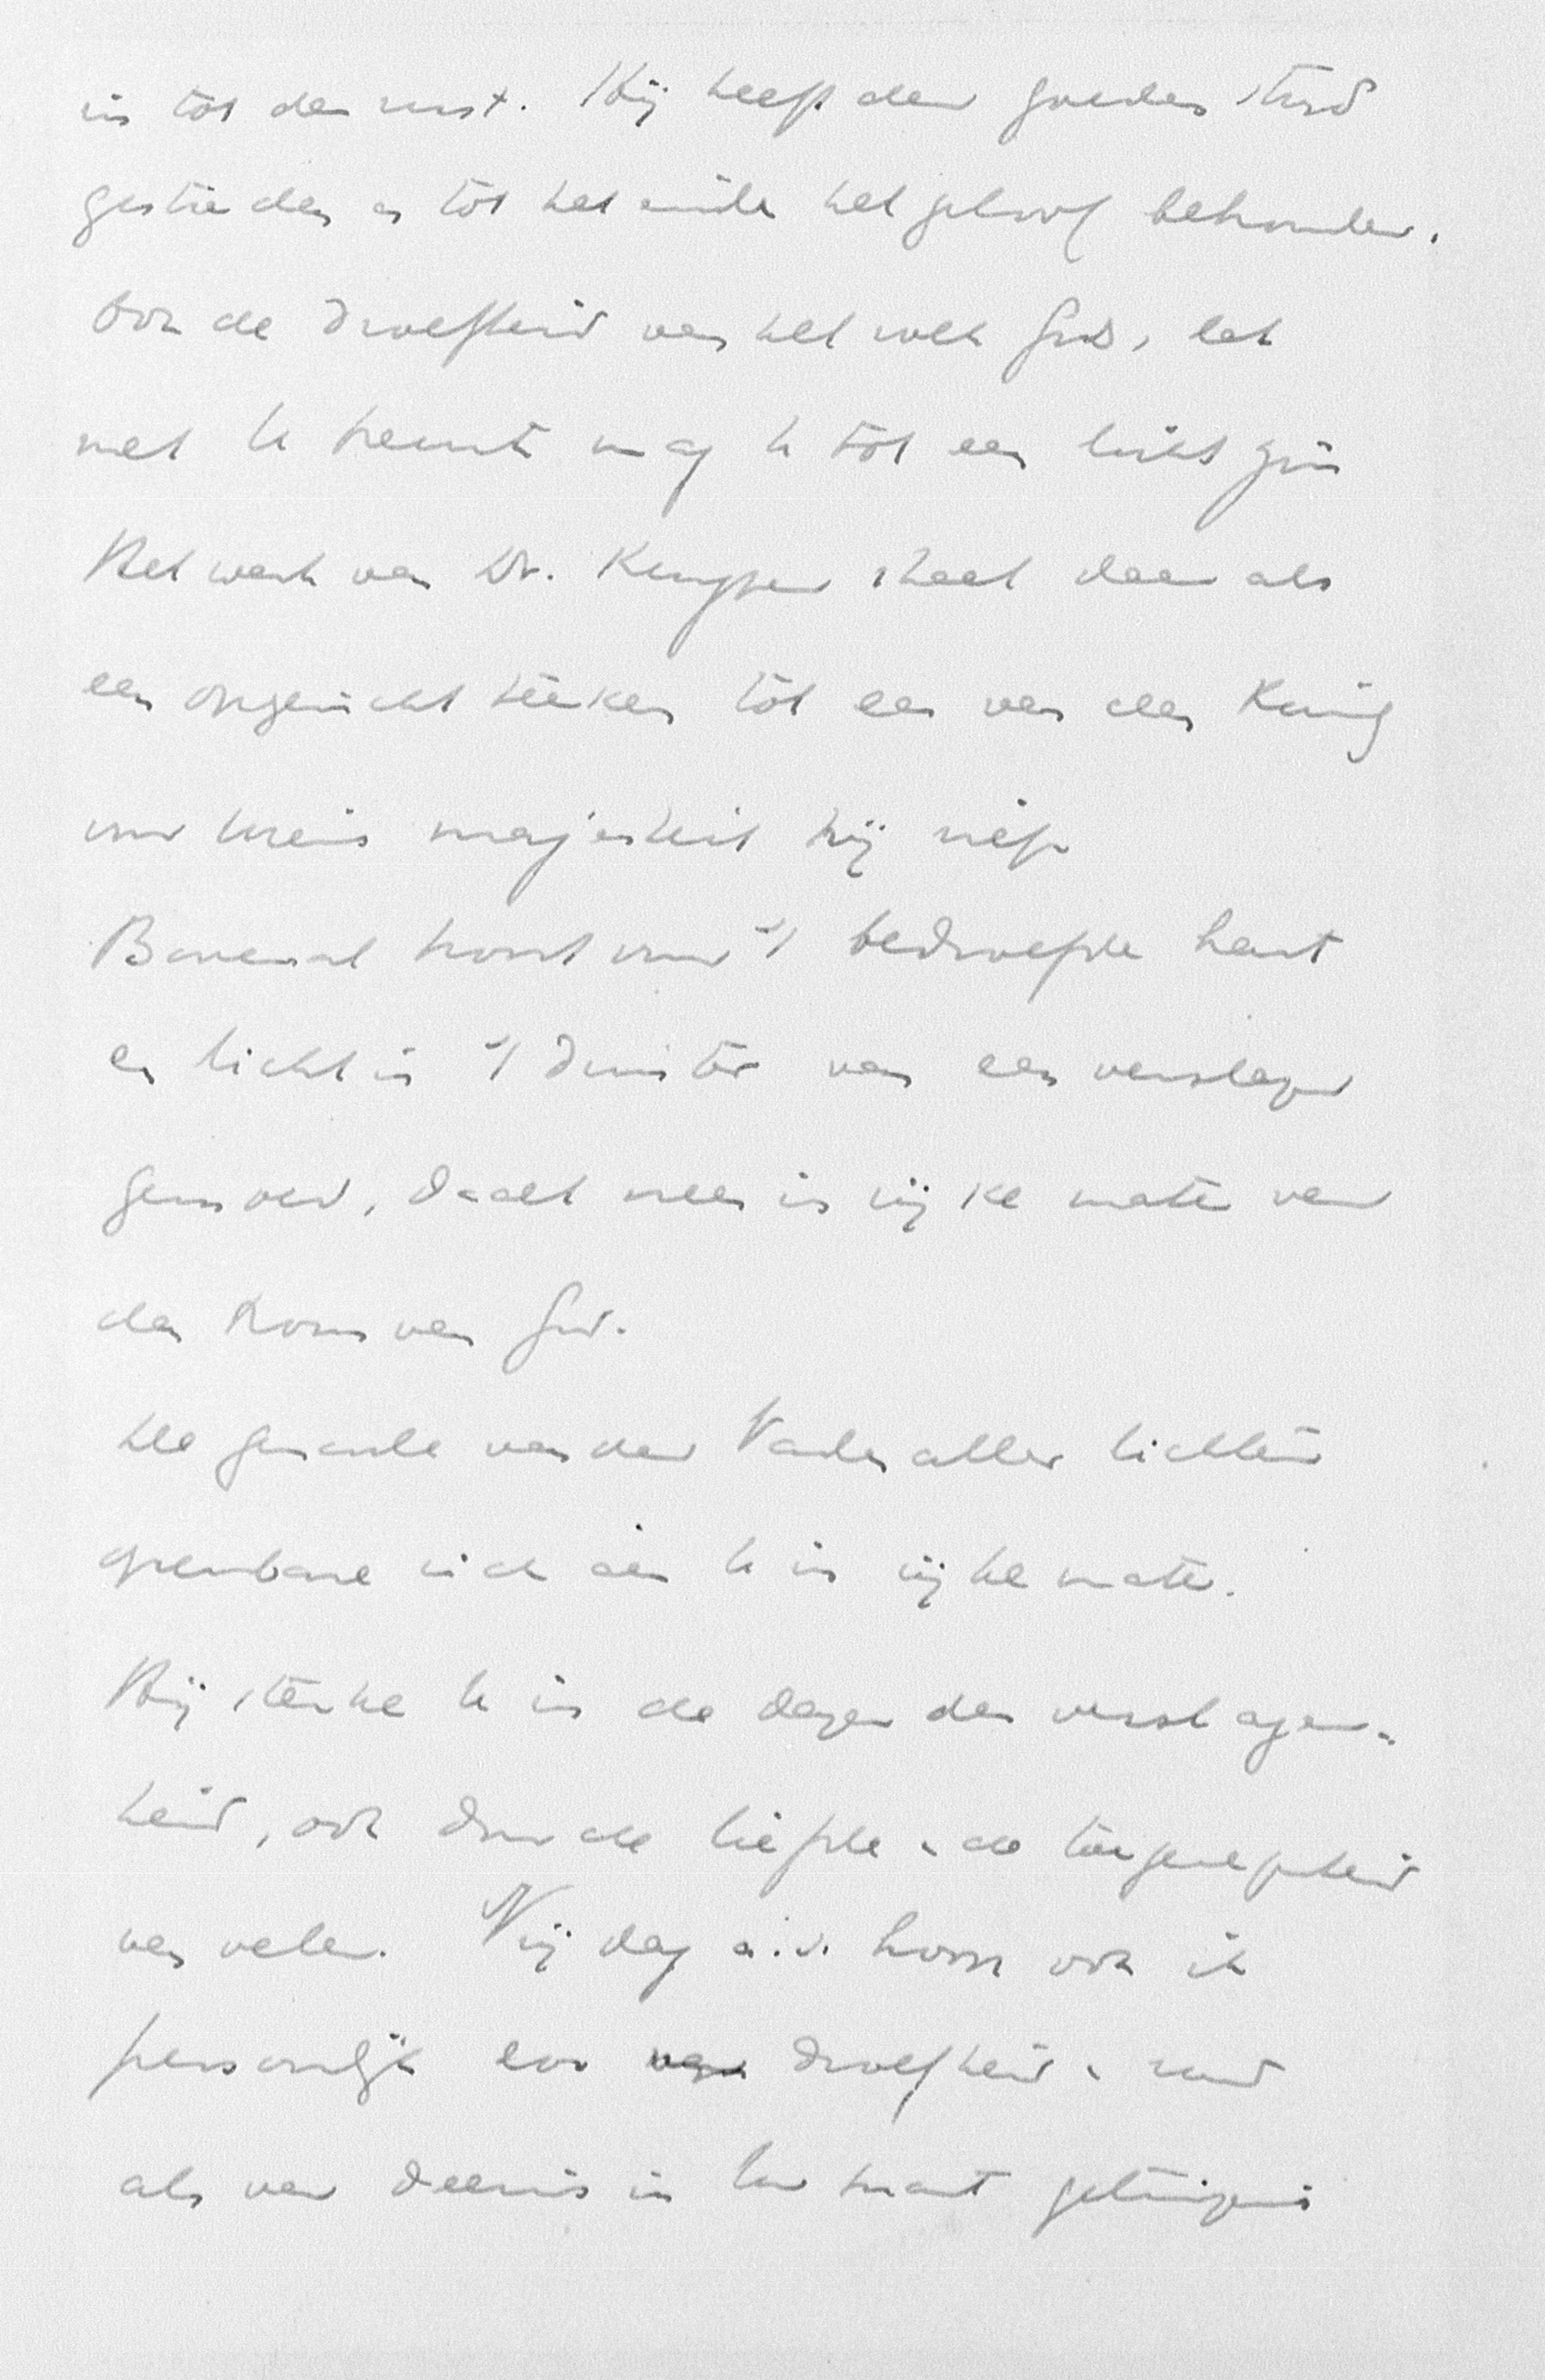 in tot de rust. Hij heeft den goeden strijd
gestreden en tot het einde het geloof behouden.
Ook de droefheid van het volk Gods, dat
met U treurt mag U tot een licht zijn
Het werk van Dr. Kuyper staat daar als
een opgericht teeken tot eer van den Koning
voor wiens majesteit hij riep
Bovenal troost voor 't bedroefde hart
en licht in 't duister van een verslagen
gemoed, daalt neer in rijke mate van
den troon van God.
De genade van den Vader aller lichten
openbare zich aan U in rijke mate.
Hij sterke U in de dagen der verslagen-
heid, ook door de liefde en de toegenegenheid
van velen. Vrijdag a.s. hoop ook ik
persoonlijk van droefheid en rouw
als van deernis in Uw smart getuigenis